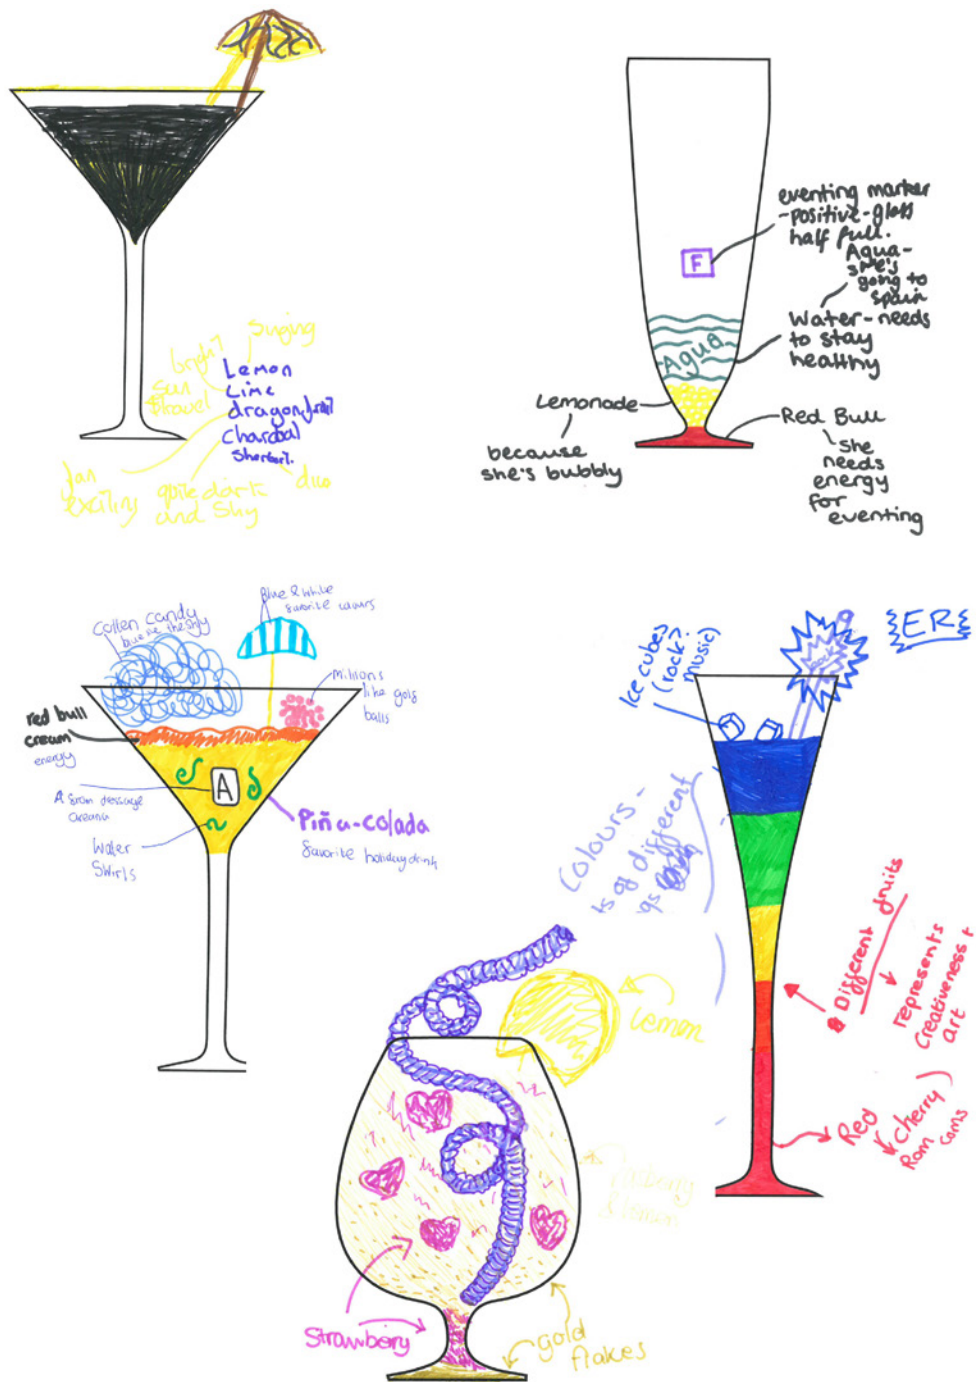 Suging
bright
Sun
travel
Lemon
Lime
dragonfruit
Charcoal
Sherbert.
fun
exciting
quite dark
and Shy
disco
eventing marker
-positive-glass
half full.
F
Aqua-
she's
going to
spain
Water-needs
to stay
healthy
Aqua
Lemonade
because
she's bubbly
Red Bull
She
needs
energy
for
eventing
Cotten candy
blue like the sky
Blue & White
favorite colours
Millions
like golf
balls
red bull
cream
energy
A
A from dressage
areana
Water
Swirls
Piña-colada
favorite holiday drink
{ER}
Ice cubes
(rock
music)
rock
Colours -
ts of different
gs
8 Different fruits
represents
Creativeness +
art
Red
Cherry
Rom coms
lemon
& lemon
Strawberry
gold
flakes